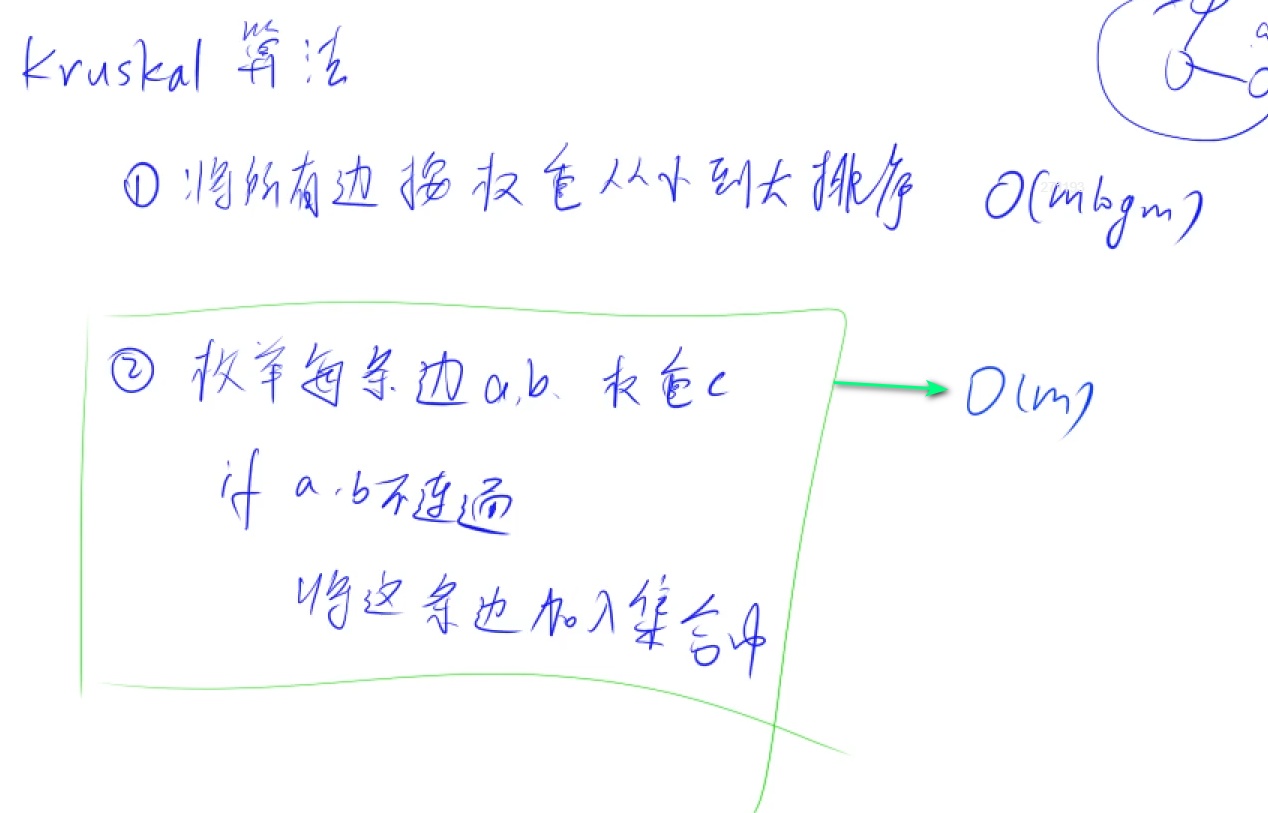 Kruskal 算法
① 将所有边按权重从小到大排序 O(mlogm)
② 枚举每条边a,b、权重c
O(m)
if a,b不连通
将这条边加入集合中